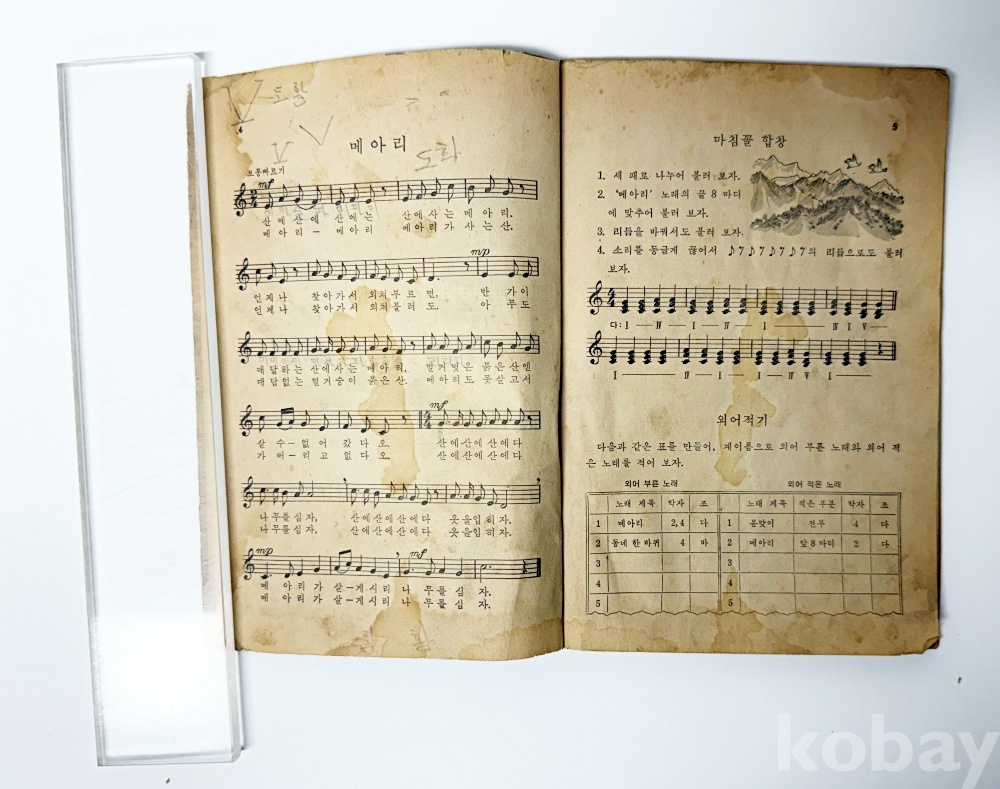 4
메아리
보통빠르기
mf
산에 산에 산에는 산에사는 메아리.
메아리 — 메아리 메아리가 사는산.
mp
언제나 찾아가서 외쳐부르면, 반가이
언제나 찾아가서 외쳐불러도. 아무도
대답하는 산에사는 메아리. 벌거벗은 붉은산엔
대답없는 벌거숭이 붉은산. 메아리도 못살고서
mf
살 수—없어 갔다오. 산에산에산에다
가 버—리고 없다오. 산에산에산에다
나무를심자, 산에산에산에다 옷을입히자.
나무를심자, 산에산에산에다 옷을입히자.
mp mf
메아리가 살—게시리 나무를심자.
메아리가 살—게시리 나무를심자.
5
마침꼴 합창
1. 세 패로 나누어 불러 보자.
2. '메아리' 노래의 끝 8 마디
에 맞추어 불러 보자.
3. 리듬을 바꿔서도 불러 보자.
4. 소리를 둥글게 끊어서 ♪7♪7♪7♪7의 리듬으로도 불러
보자.
다: I — IV — I — IV — I — IV I V —
I — IV — I — V — I — IV V I —
외어적기
다음과 같은 표를 만들어, 계이름으로 외어 부른 노래와 외어 적
은 노래를 적어 보자.
외어 부른 노래 외어 적은 노래
노래 제목 박자 조 노래 제목 적은 부분 박자 조
1 메아리 2,4 다 1 봄맞이 전부 4 다
2 동네 한 바퀴 4 바 2 메아리 앞 8 마디 2 다
3 3
4 4
5 5
kobay